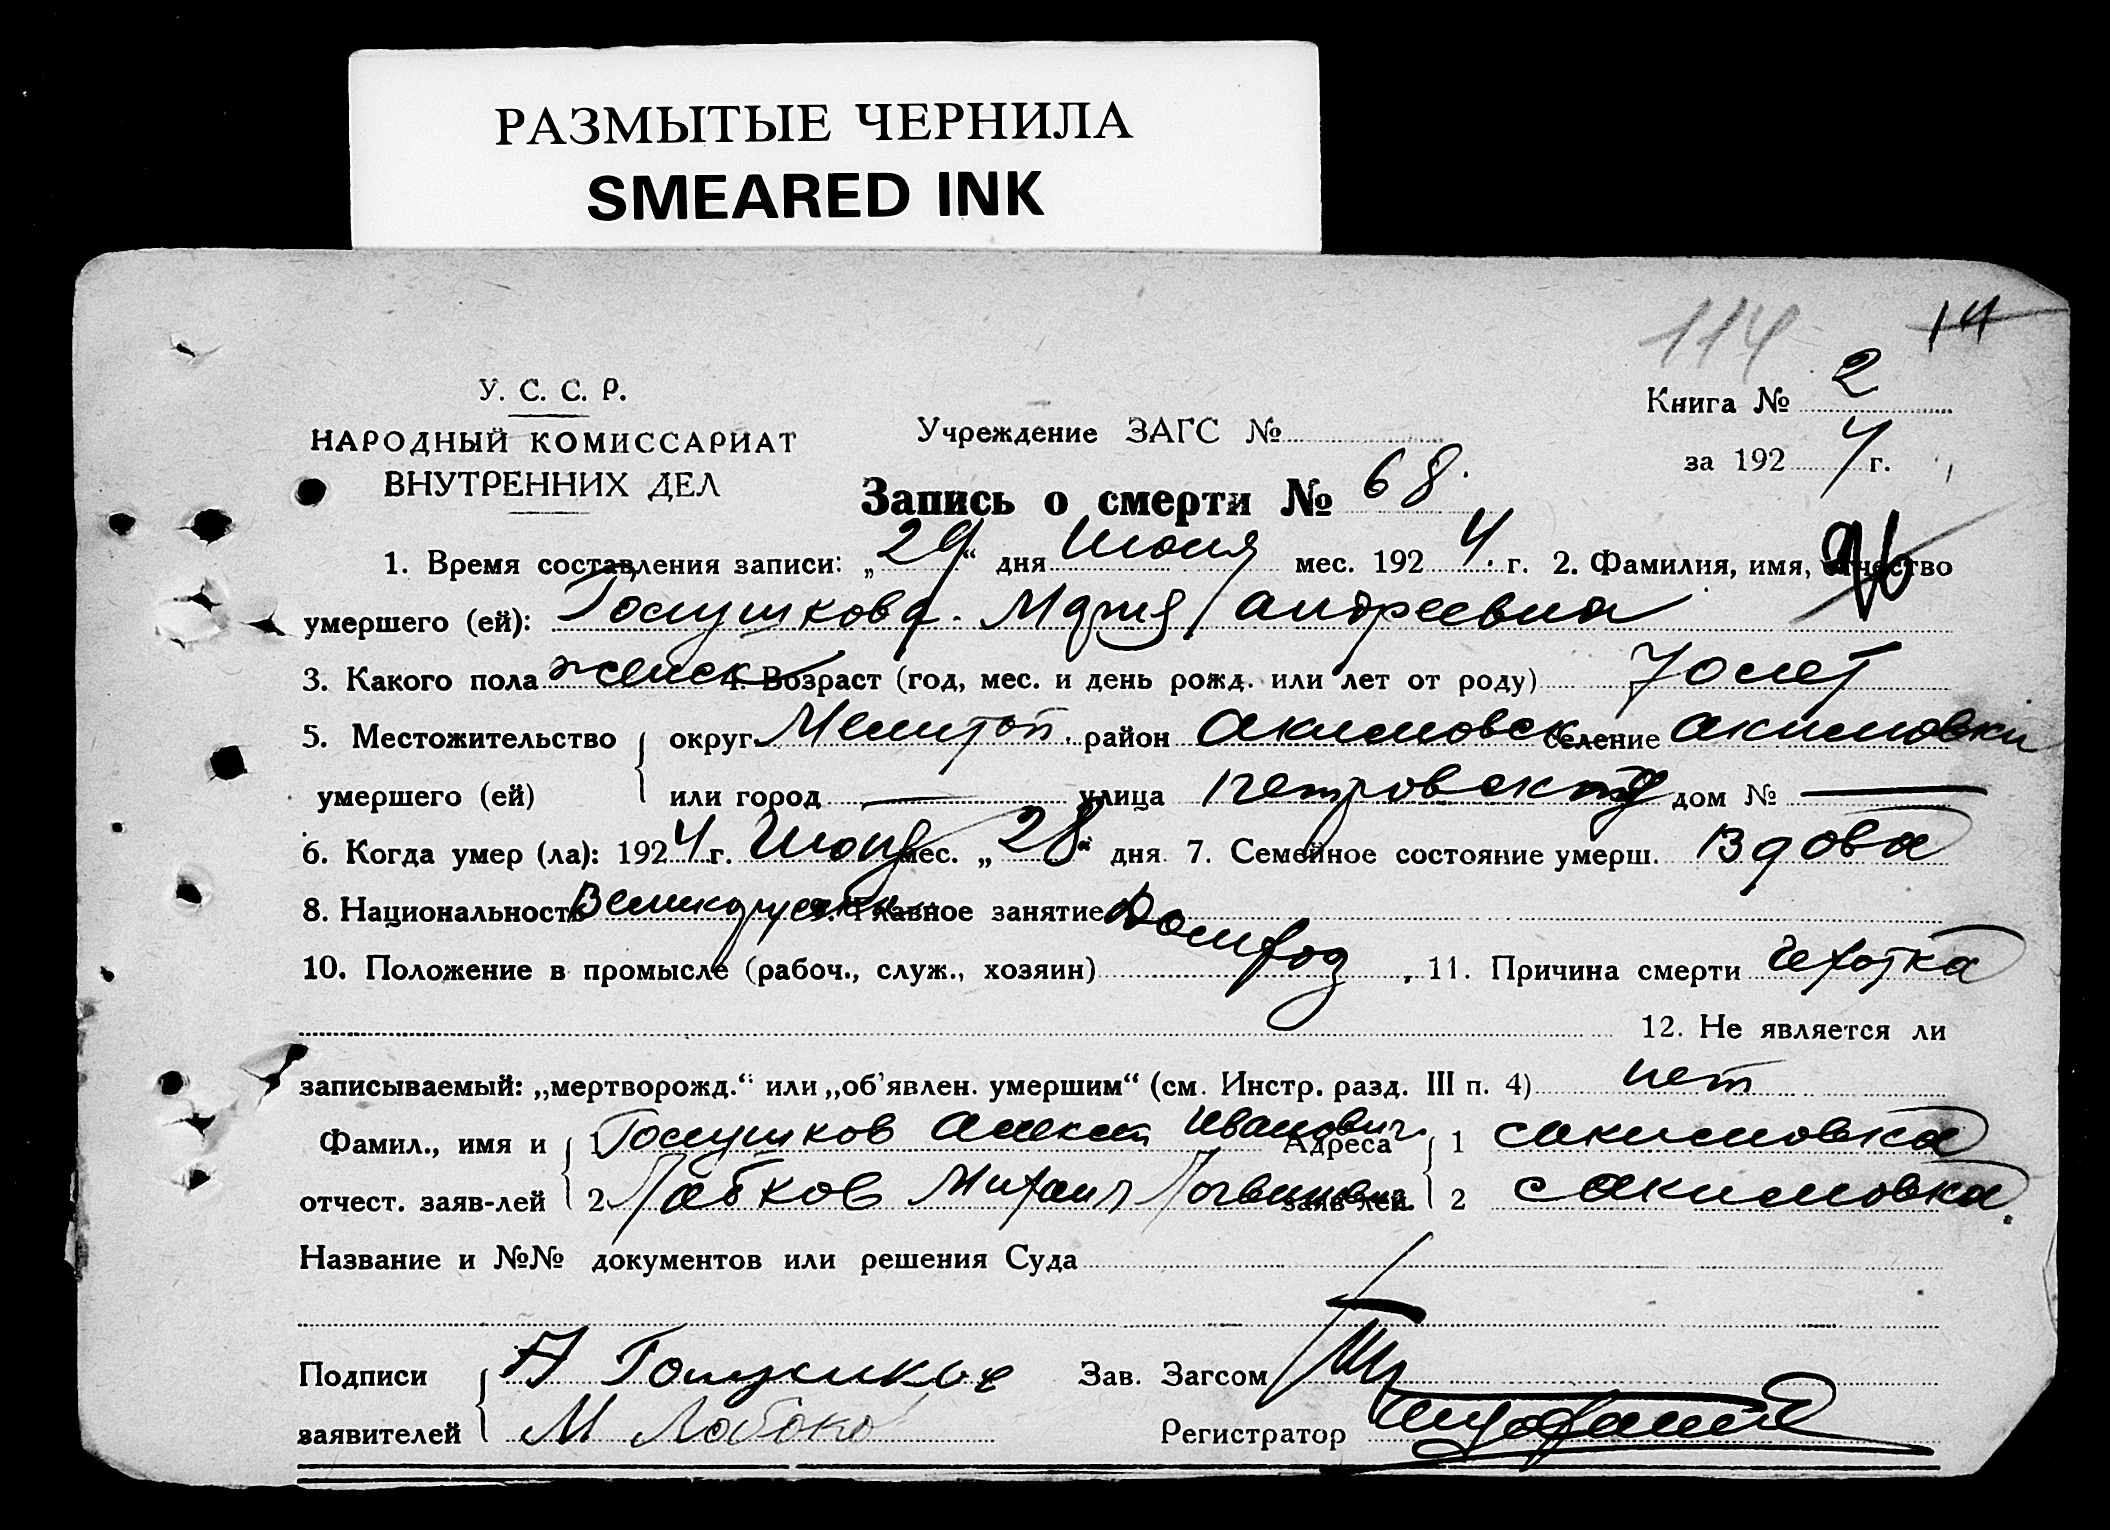 РАЗМЫТЫЕ ЧЕРНИЛА
SMEARED INK
114 14
У. С. С. Р.
НАРОДНЫЙ КОМИССАРИАТ
ВНУТРЕННИХ ДЕЛ
Учреждение ЗАГС №
Книга № 2
за 1924 г.
Запись о смерти № 68.
1. Время составления записи: „29“ дня Июня мес. 1924. г. 2. Фамилия, имя, отчество
умершего (ей): Голушкова. Мария Андреевна
3. Какого пола женск 4. Возраст (год, мес. и день рожд. или лет от роду) 70 лет
5. Местожительство округ Мелитоп. район Акимовск селение Акимовки
умершего (ей) или город — улица Петровская дом № —
6. Когда умер (ла): 1924 г. Июня мес. „28“ дня 7. Семейное состояние умерш. Вдова
8. Национальность Великорус 9. Главное занятие
10. Положение в промысле (рабоч., служ., хозяин) 11. Причина смерти Чехотка
12. Не является ли
записываемый: „мертворожд.“ или „об'явлен. умершим“ (см. Инстр. разд. III п. 4) нет
Фамил., имя и 1 Голушков Алексей Иванович Адреса 1 с Акимовка
отчест. заяв-лей 2 Михаил заяв-лей 2 с Акимовка.
Название и №№ документов или решения Суда
Подписи А Голушков Зав. Загсом
заявителей М Регистратор